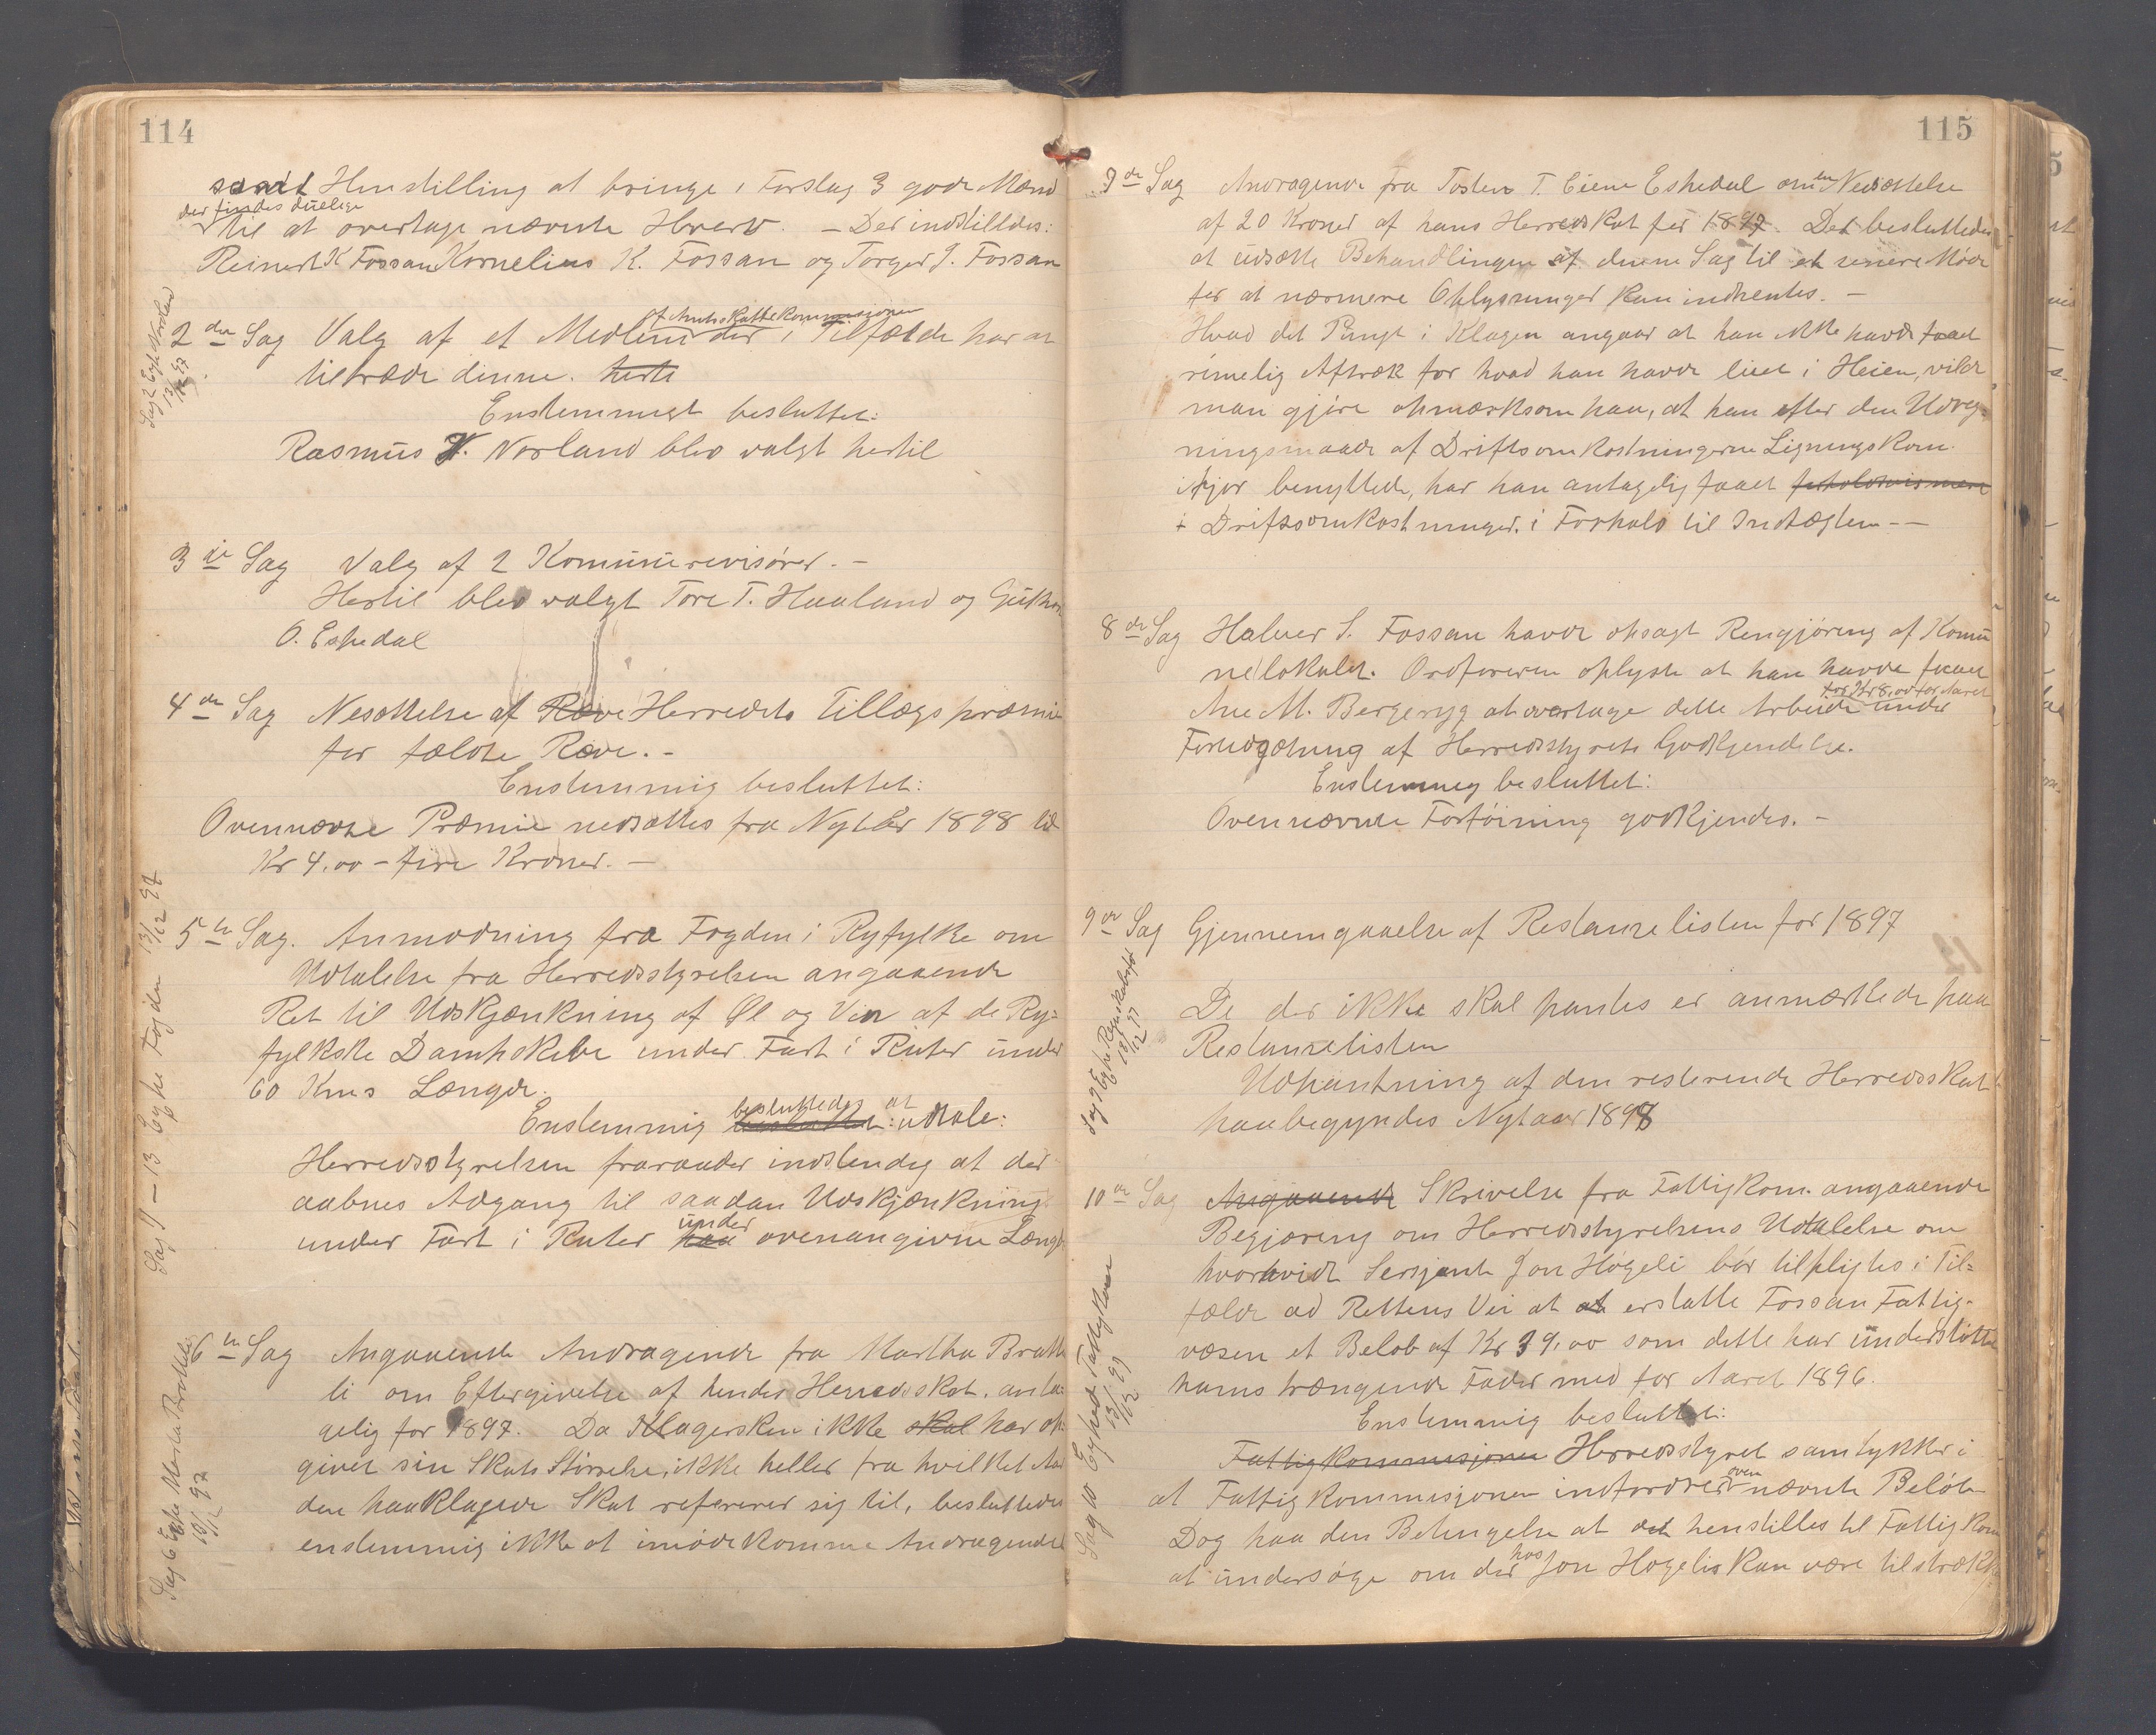 114
samt Henstilling at bringe i Forslag 3 gode Mænd
der findes duelige
til at overtage nævnte Hverv. - Der indstilledes:
Reinert K Fossan Kornelius K. Fossan og Torger J. Fossan
2den Sag Valg af et Medlem af Amtsskattekommissionen der i Tilfælde har at
tiltræde denne. herte
Enstemmigt besluttet:
Rasmus K. Norland blev valgt hertil
Sag 2 Exp. Norland
13/12 97
3die Sag Valg af 2 Kommunerevisorer. -
Hertil blev valgt Tore T. Haaland og
O. Eskedal
4de Sag Nesættelse af Ræve Herredets Tillægspræmie
for fældte Ræve. -
Enstemmig besluttet:
Ovennævnte Præmie nedsættes fra Nytår 1898 til
Kr 4.00 - fire Kroner. -
5te Sag. Anmodning fra Fogden i Ryfylke om
Udtalelse fra Herredsstyrelsen angaaende
Ret til Udskjænkning af Øl og Vin af de Ry=
fylkske Dampskibe under Fart i Ruter under
60 Kms Længde.
Enstemmig besluttet: besluttedes at udtale:
Herredsstyrelsen fraraader indstendig at der
aabnes Adgang til saadan Udskjænkning
under Fart i Ruter paa under ovenangivne Længde
13/12 97
6te Sag Angaaende Andragende fra Martha Bratte
li om Eftergivelse af hendes Herredsskat. anta=
gelig for 1897. Da Klagersken ikke skal har op=
givet sin Skats Størrelse, ikke heller fra hvilket Aar
den paaklagede Skat refererer sig til, besluttedes
enstemmig ikke at imødekomme Andragendet
Sag 6 Exp. Marta Bratteli
13/12 97
115
7de Sag Andragende fra Tosten T. Eiene Eskedal om en Nedsættelse
af 20 Kroner af hans Herredsskat for 1897. Det besluttedes
at udsætte Behandlingen af denne Sag til et senere Møde
for at nærmere Oplysninger kan indhentes. -
Hvad det Pungt i Klagen angaar at han ikke havde faaet
rimelig Aftræk for hvad han havde liet i Heien, vilde
man gjøre opmærksom paa, at han efter den Udreg=
ningsmaade af Driftsomkostningerne Ligningskom.
ifjor benyttede, har han antagelig faaet forholdsvis mere
i Driftsomkostninger. i Forhold til Indtægten --
8de Sag Halver S. Fossan havde opsagt Rengjøring af Kommu
nelokalet. Ordføreren oplyste at han havde faaet
for Kr 8,00 for Aaret
Ane M. Bergeryg at overtage dette Arbeide under
Forudsætning af Herredsstyrets Godkjendelse.
Enstemmig besluttet:
Ovennævnte Forføining godkjendes. -
9de Sag Gjennemgaaelse af Restanselisten for 1897
De der ikke skal pantes er anmærkede paa
Restanselisten
Udpantning af den resterende Herredsskat
paabegyndes Nytaar 1898
13/12 97
10de Sag Angaaende Skrivelse fra Fattigkom. angaaende
Begjæring om Herredsstyrelsens Udtalelse om
hvorhvidt Sersjant Jon Høgeli bør tilpligtes i Til=
fælde ad Rettens Vei at at erstatte Fossan Fattig-
væsen et Beløb af Kr 39.00 som dette har understøttet
hams trængende Fader med for Aaret 1896.
Enstemmig besluttet:
Fattigkommissjonen Herredsstyret samtykker i
at Fattigkommissjonen indfordrer ovennævnte Beløb
Dog paa den Betingelse at det henstilles til Fattigkom
at undersøge om der hos Jon Høgelis kan være tilstrækk
Sag 10 Exped Fattigkom
13/12 97